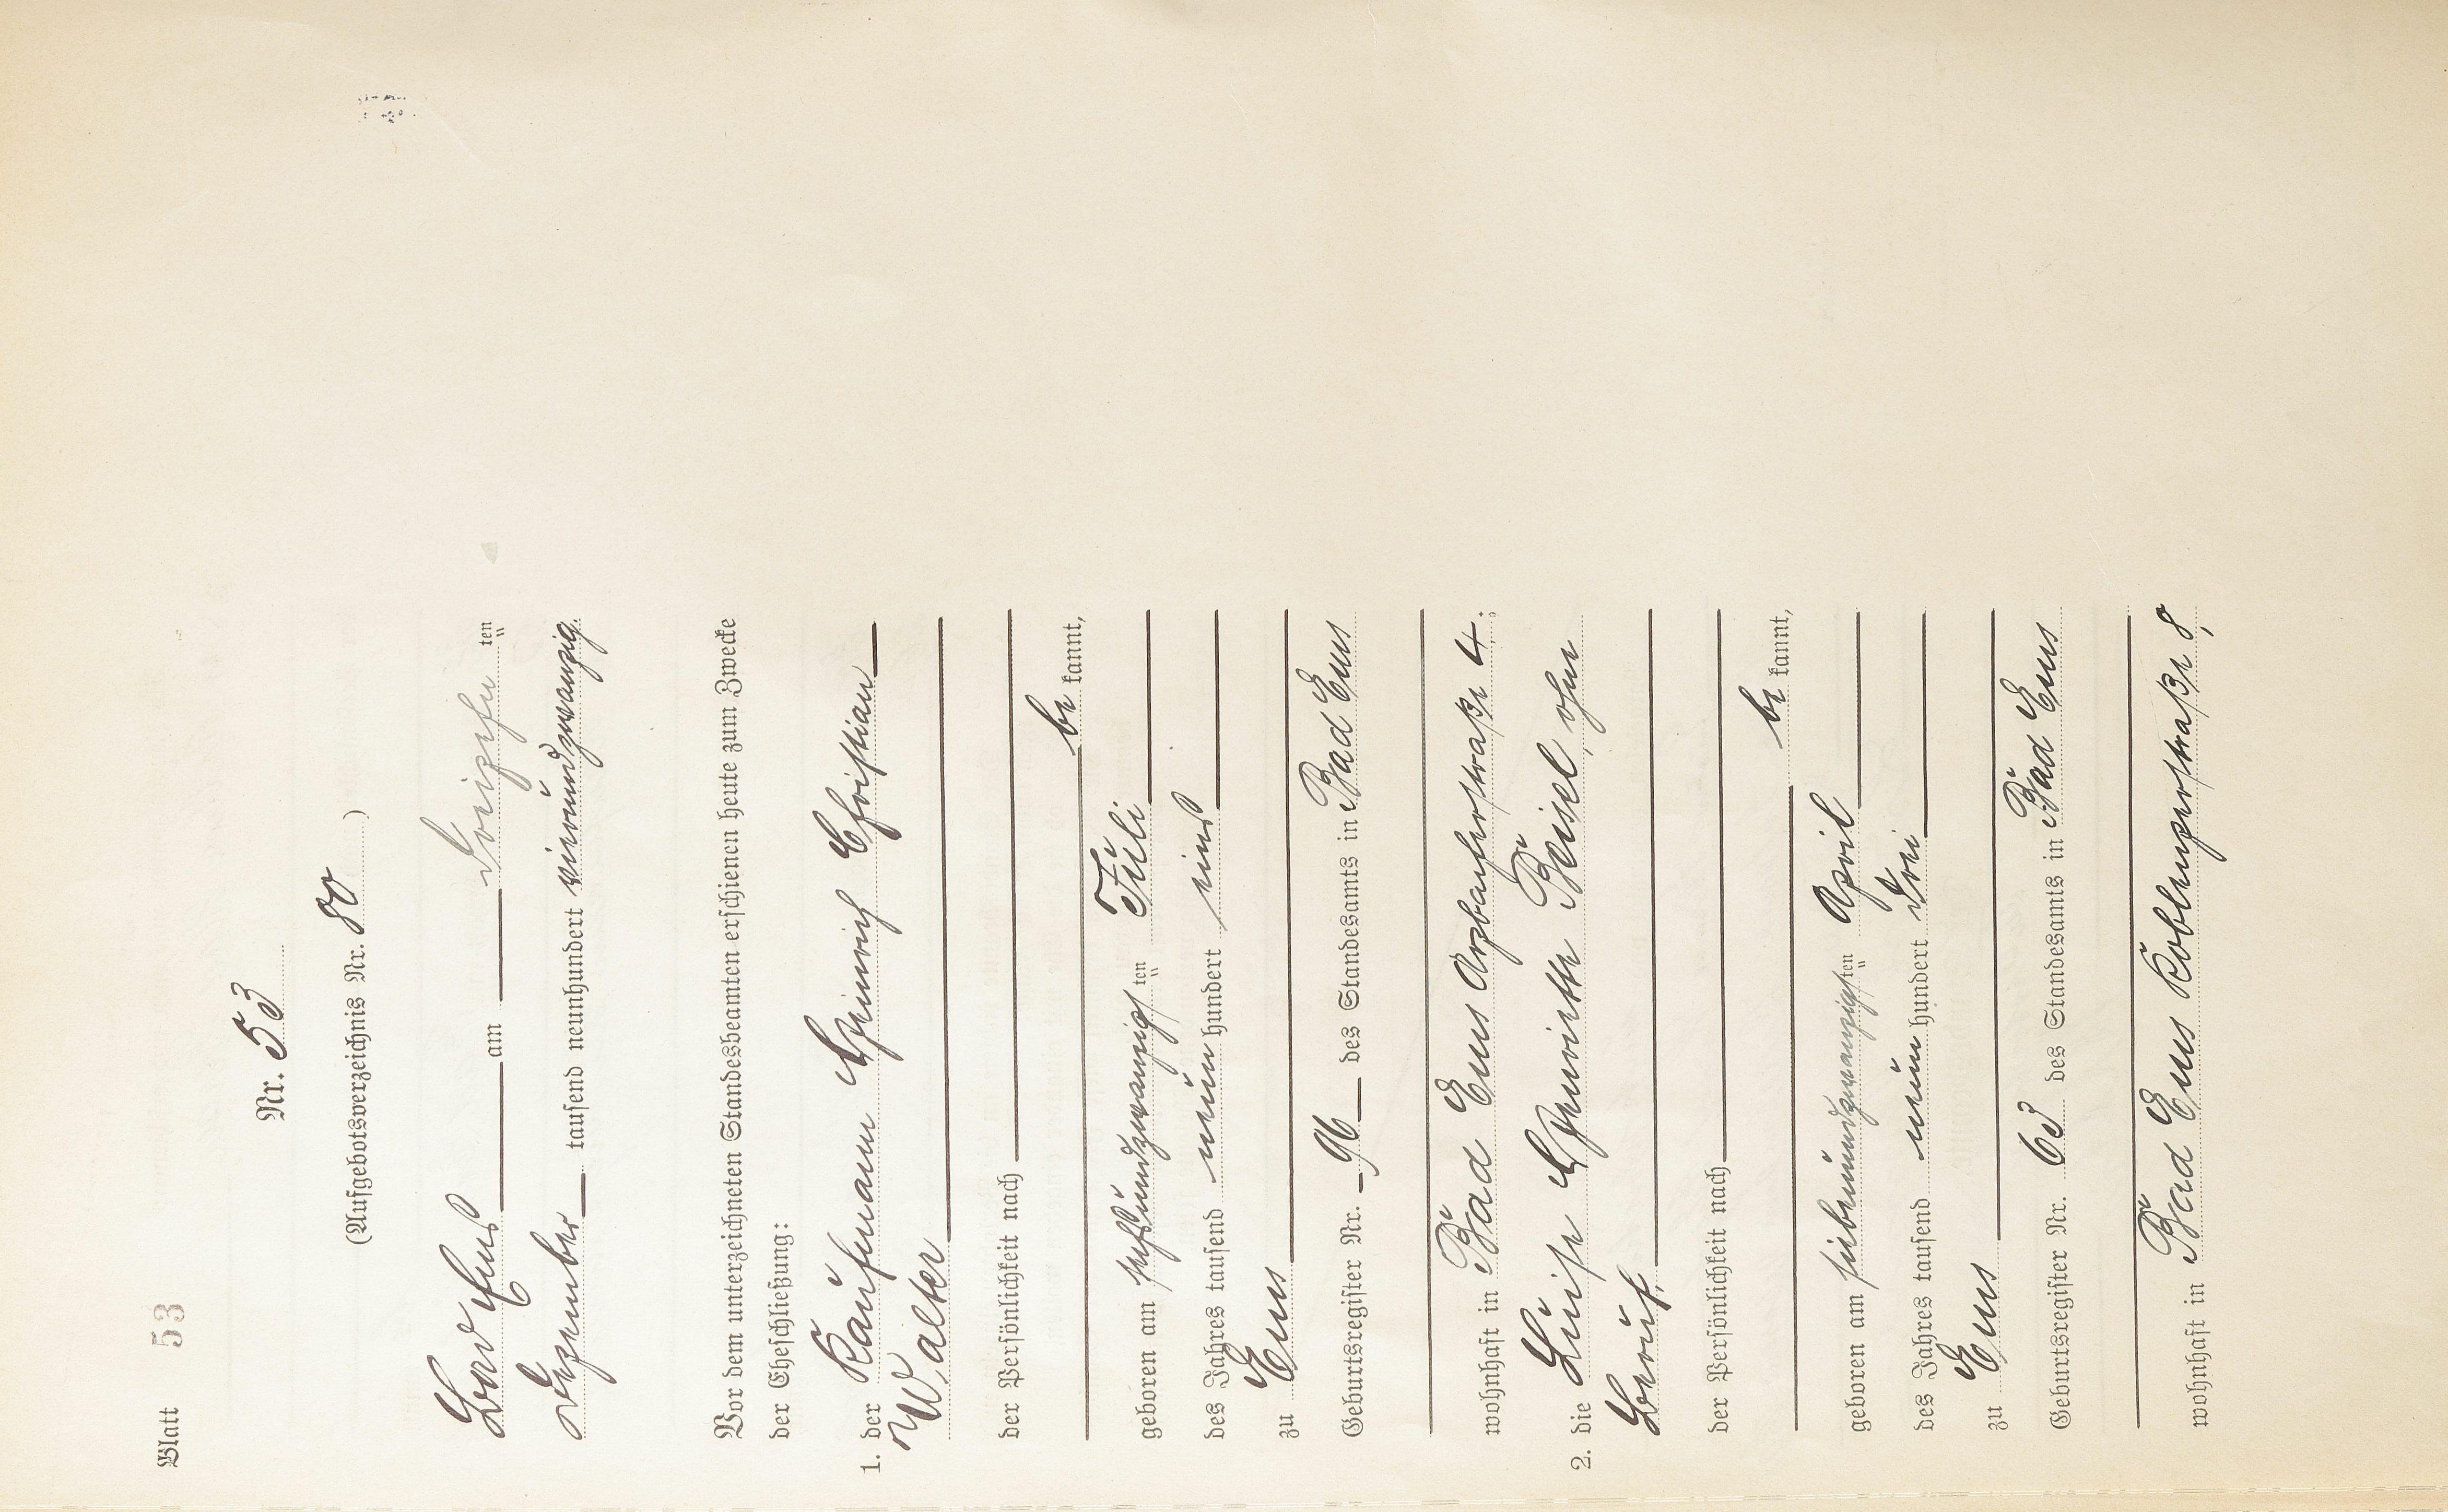 Blatt 53
Nr. 53
(Aufgebotsverzeichnis Nr. 80)
Bad Ems am dreizehnten
Dezember tausend neunhundert vierundzwanzig.
Vor dem unterzeichneten Standesbeamten erschienen heute zum Zwecke
der Eheschließung:
1. der Kaufmann Heinrich Christian
Walter
der Persönlichkeit nach
bekannt,
geboren am sechsundzwanzigsten Juli
des Jahres tausend neunhundert eins
zu Ems
Geburtsregister Nr. 96 des Standesamts in Bad Ems
wohnhaft in Bad Ems Arzbacherstraße 4.;
2. die Luise Henriette Beisel, ohne
Beruf,
der Persönlichkeit nach
bekannt,
geboren am siebenundzwanzigsten April
des Jahres tausend neunhundert drei
zu Ems
Geburtsregister Nr. 63 des Standesamts in Bad Ems
wohnhaft in Bad Ems Koblenzerstraße 8,